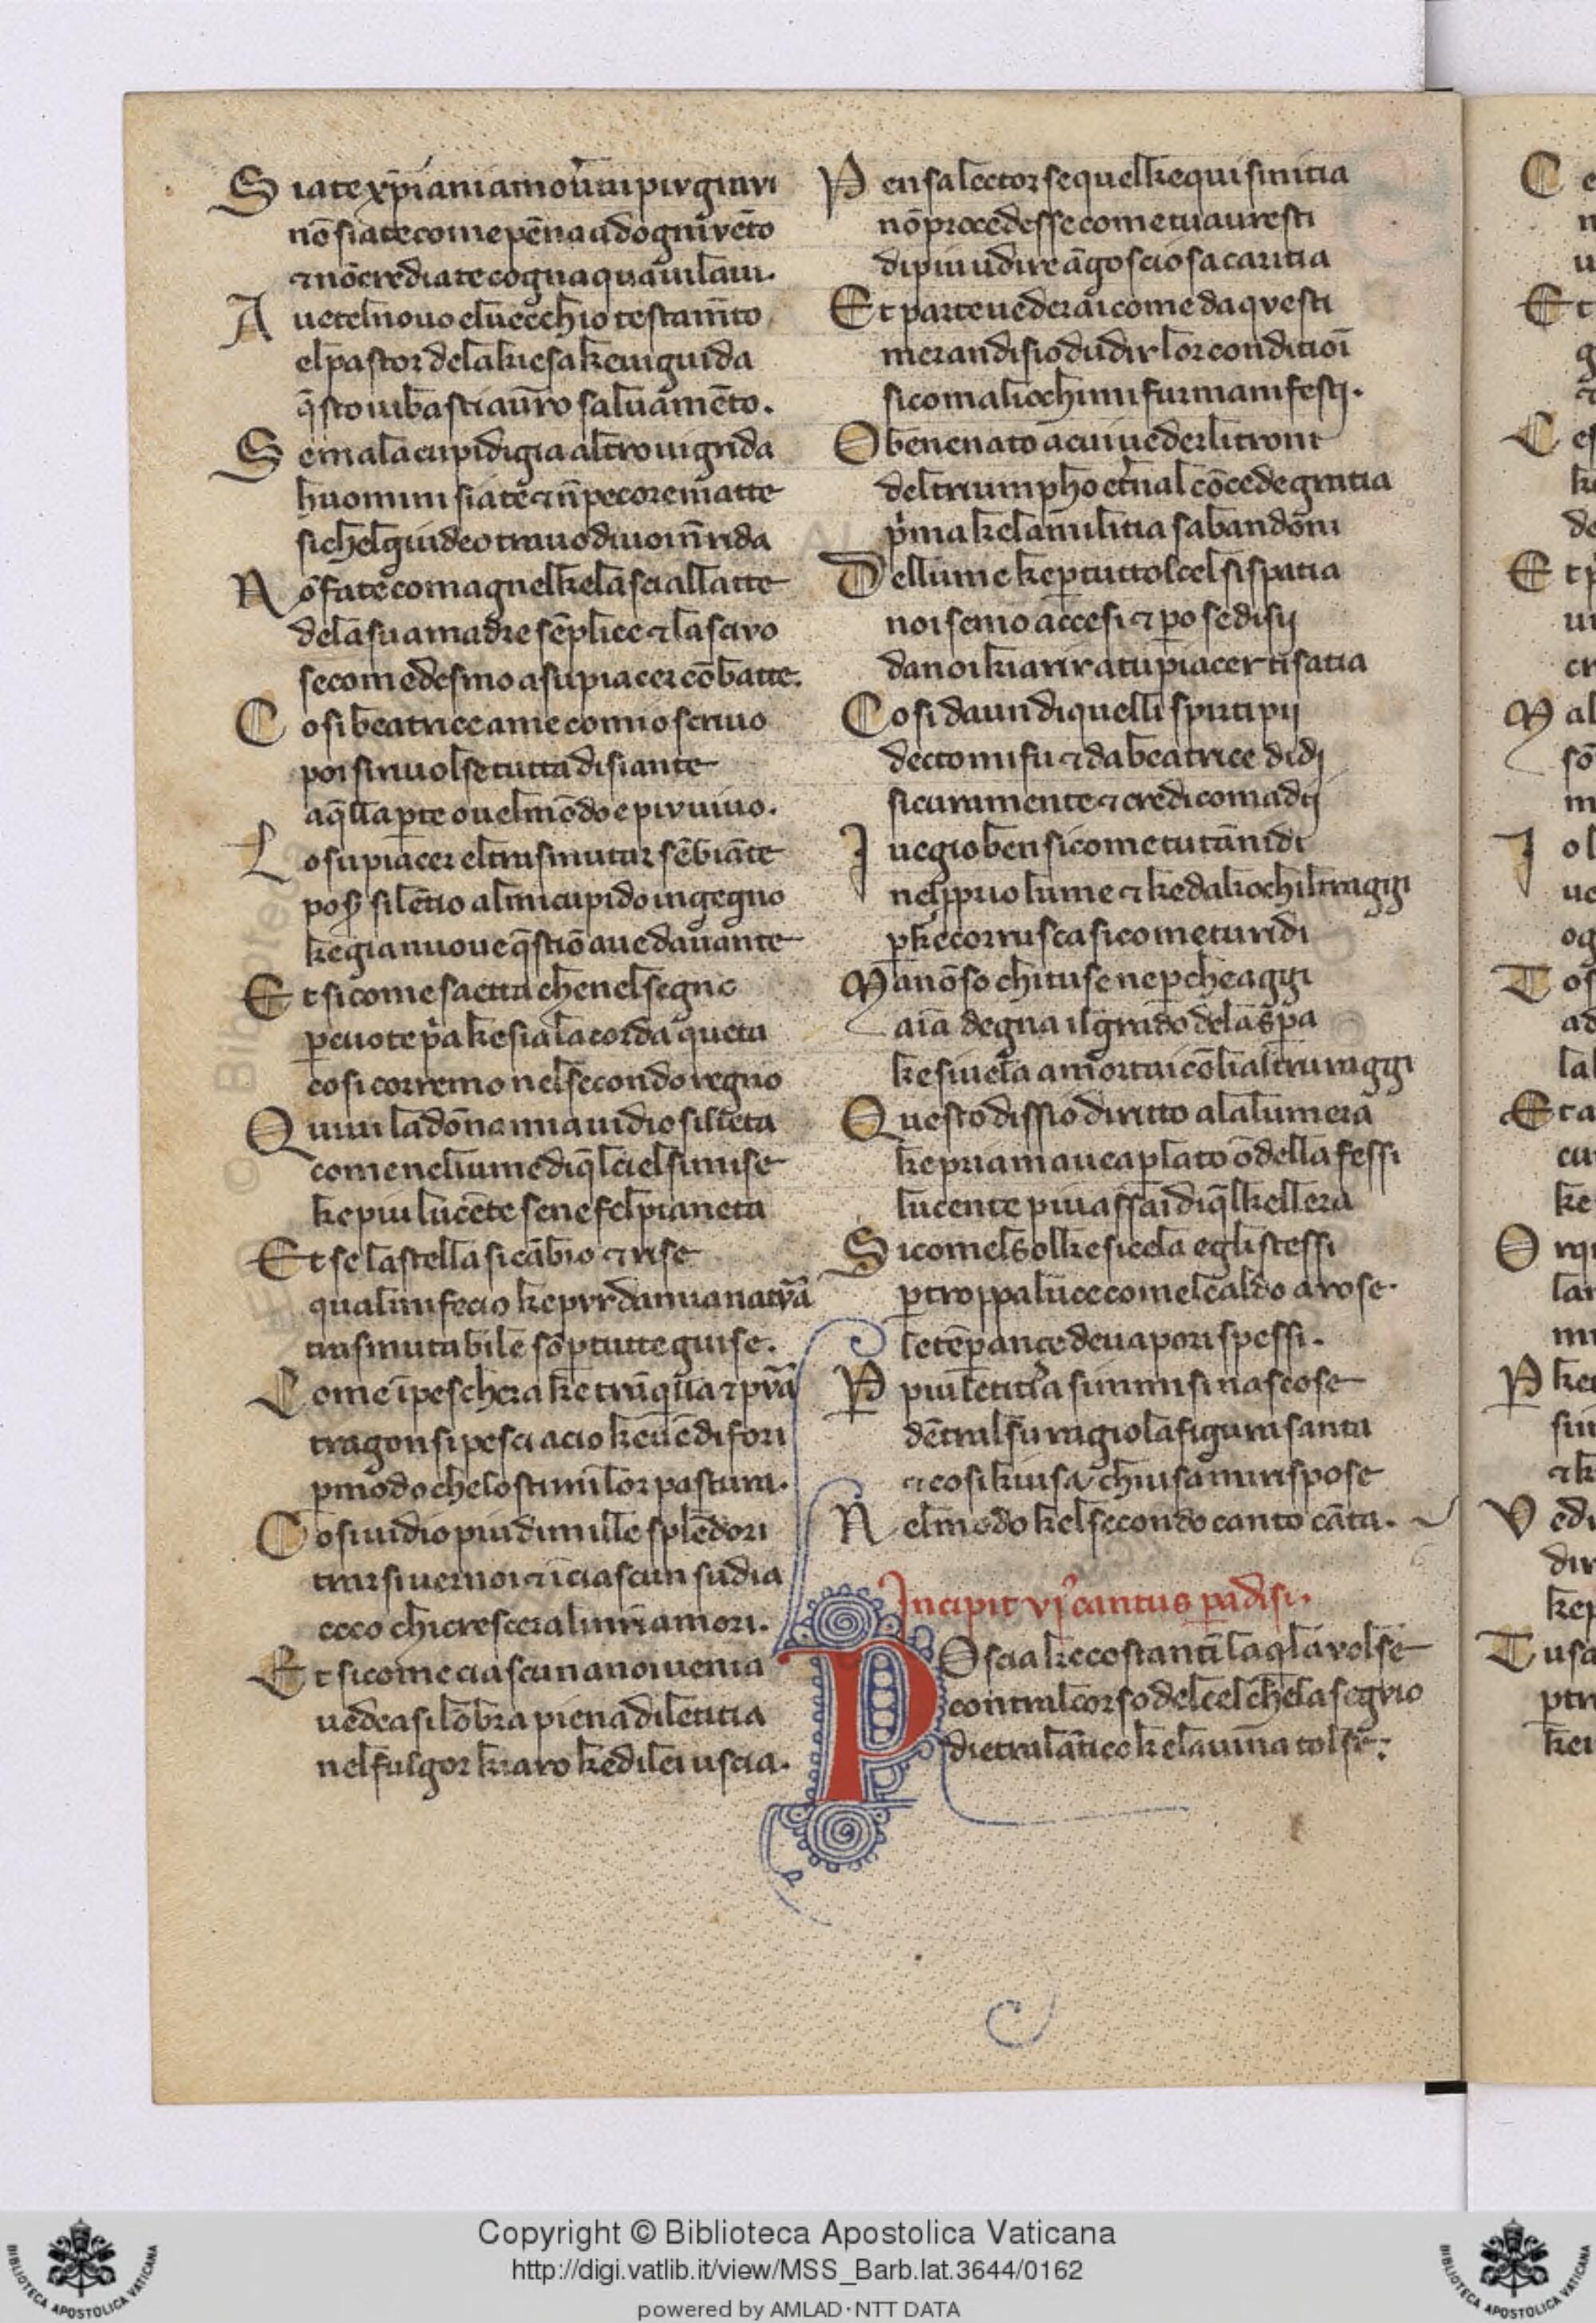 S iate xp̄iani amou͛ui piv graui
nō siate come pēna ad ogni vēto
⁊ nō crediate cogna qua ui laui.
A uetel nouo el uecchio testam̄to
el pastor dela kiesa ke ui guida
q̄sto ui basti au͞ro saluamēto.
S e mala cupidigia altro ui grida
huomini siate ⁊ n̄ pecore matte
si chel guideo tra uo di uoi n̄ rida
N ō fate comagnel ke lascia llatte
dela sua madre sēplice ⁊ lascivo
seco medesmo a su piacer cōbatte.
C osi beatrice a me comio scriuo
poi si riuolse tutta disiante
a q̄lla p̲te ouel mōdo e piv uiuo.
L o su piacer el trasmutar sēbiāte
pos͛ silētio al mi cupido ingegno
ke gia nuoue q̄stiō aue dauante
E t si come saetta che nel segno
p̲cuote p͛a ke sia la corda queta
cosi corremo nel secondo regno
Q uiui la dōna mia uidio si lieta
come nel lume di q̄l ciel si mise
ke piu lucēte sene fel pianeta
E t se la stella si cābio ⁊ rise
qual mi fecio ke pvr da mia natvr̄a
trasmutabile sō p̲ tutte guise.
C ome ī peschera ke trāq̄lla ⁊ pvr̄a
tragonsi pesci a cio ke uē di fori
p̲ modo che lo stimi lor pastura.
C osi uidio piu di mille splēdori
trarsi uer noi ⁊ ī ciascun sudia
ecco chi crescera li nr̄i amori.
E t si come ciascun a noi uenia
uedeasi lōbra piena di letitia
nel fulgor kiaro ke di lei uscia.
P ensa lector se quel ke qui si nitia
nō procedesse come tu auresti
di piu udire āgosciosa caritia
E t par te uederai come da qvesti
mera ndisio dudir lor conditioī
si coma li ochi mi fur manifestj.
O bene nato a cui ueder li troni
del triumpho et͛nal cōcede gratia
p͛ma ke la militia sabandōni
D ellume ke p̲ tutto lcel si spatia
noi semo accesi ⁊ p̲o se disij
da noi kiarir a tu piacer ti satia
C osi da un di quelli spirti pij
decto mi fu ⁊ da beatrice di dj
sicuramente ⁊ credi coma dij
I ueggio ben si come tu tānidi
nel pprio lume ⁊ ke da li ochi l traggi
p̲ke corrusca si come tu ridi
M a nō so chi tu se ne p̲ che aggi
aīa degna il grado dela sp̲a
ke si uela a mortai cō li altrui raggi
Q uesto dissio diritto ala lumera
ke pria mauea p̲lato ōdella fessi
lucente piu assai di q̄l kellera
S i comel sol ke si cela egli stessi
p̲ troppa luce comel caldo a rose
le tēp̲ance de uapori spessi.
P̲ piu letitia si mi si nascose
dētral su ragio la figura santa
⁊ cosi kiusa chiusa mi rispose
N el modo kel secondo canto cāta.
Incipit vj͛ cantus p̲adisi.
P Oscia ke costantī laq̲la volse
contral corso del cel chela seguio
dietral ātico ke lauina tolse:
Copyright © Biblioteca Apostolica Vaticana
http://digi.vatlib.it/view/MSS_Barb.lat.3644/0162
powered by AMLAD·NTT DATA